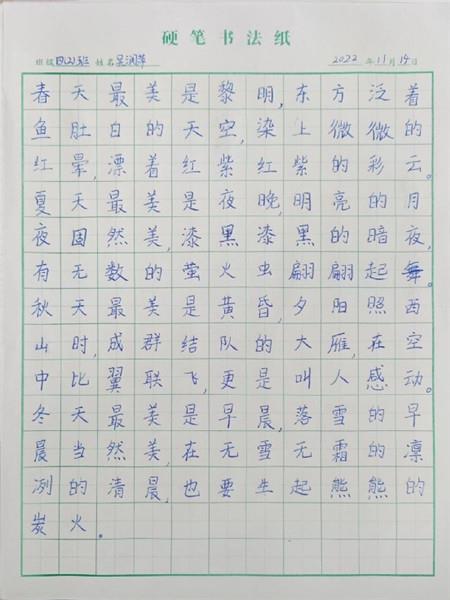 硬笔书法纸
班级四(2)班 姓名吴润萍 2022年11月14日
春天最美是黎明,东方泛着
鱼肚白的天空,染上微微的
红晕,漂着红紫红紫的彩云。
夏天最美是夜晚,明亮的月
夜固然美,漆黑漆黑的暗夜,
有无数的萤火虫翩翩起舞。
秋天最美是黄昏,夕阳照西
山时,成群结队的大雁,在空
中比翼联飞,更是叫人感动。
冬天最美是早晨,落雪的早
晨当然美,在无雪无霜的凛
冽的清晨,也要生起熊熊的
炭火。